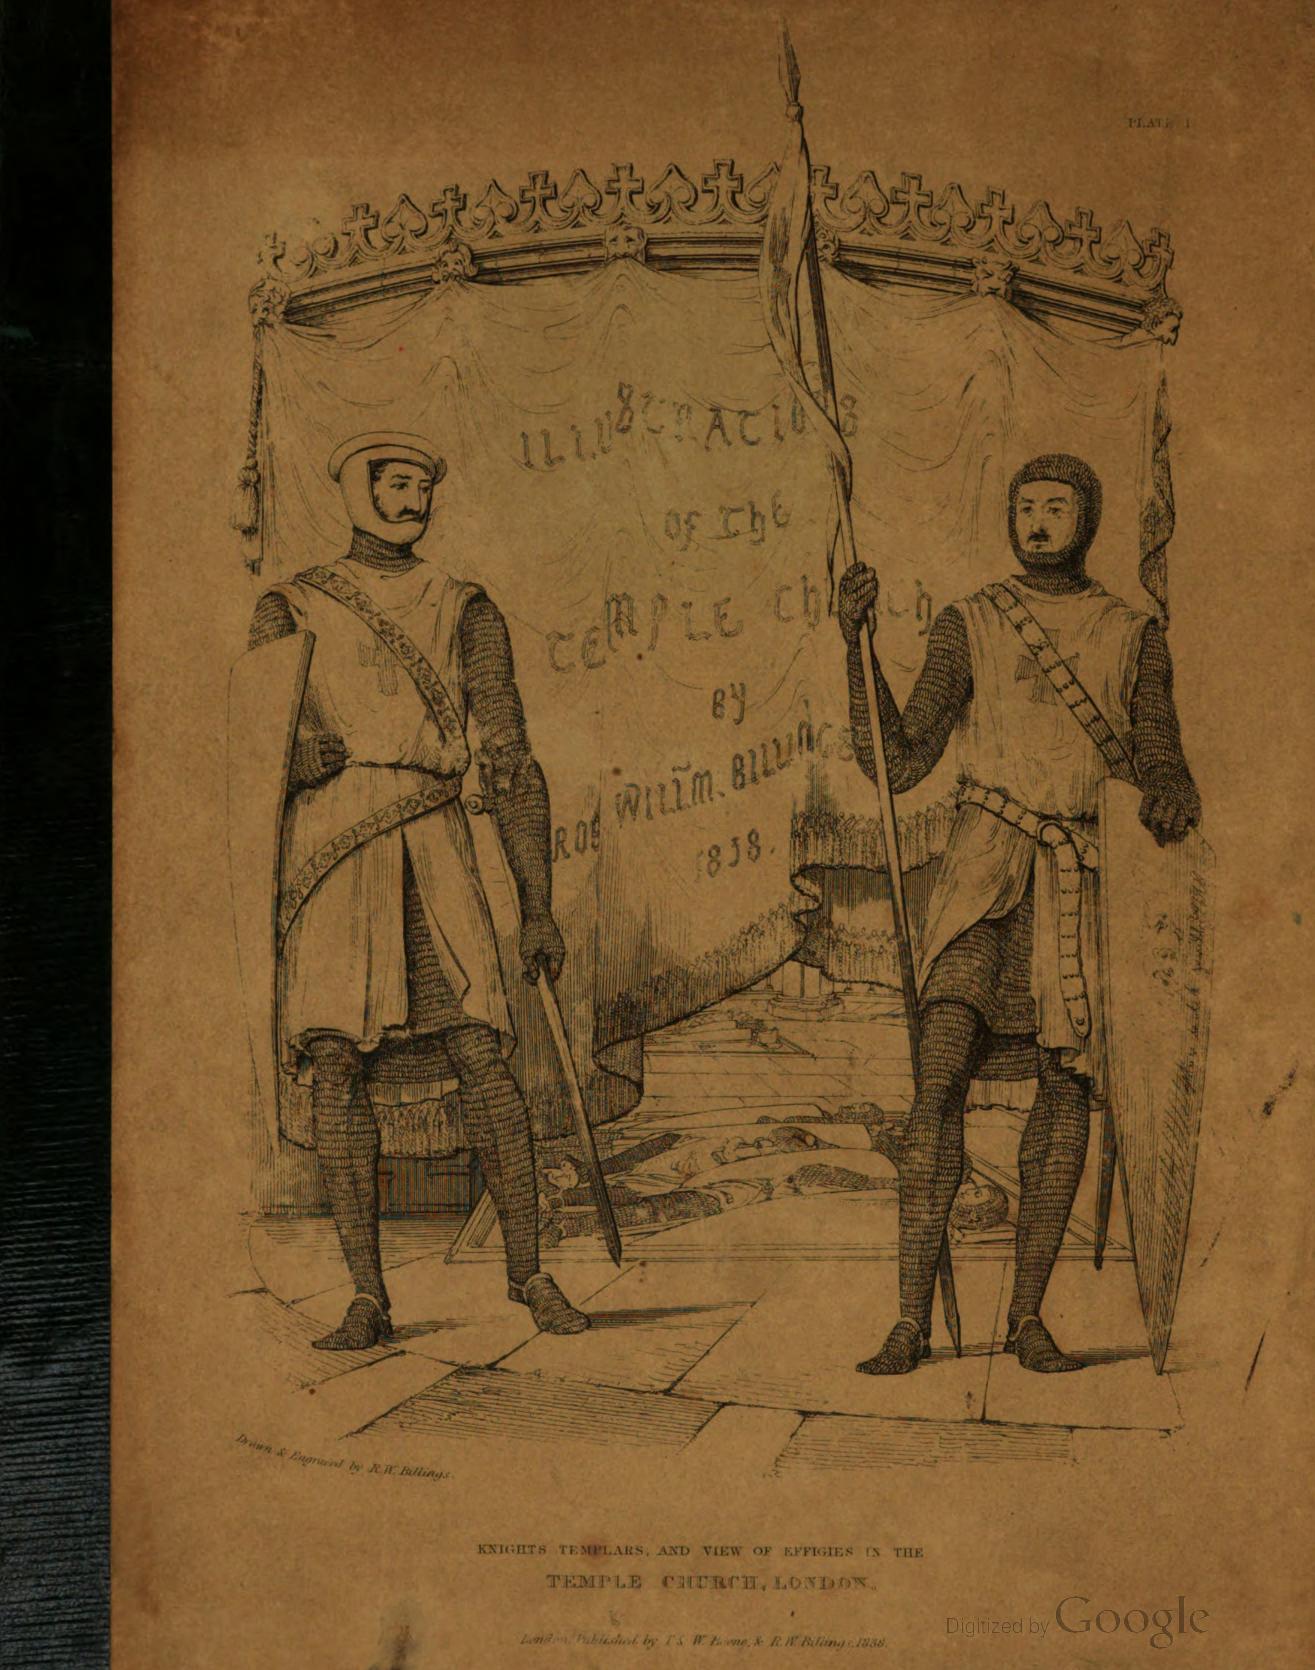 PLATE 1
ILLUSTRATIONS
OF THE
TEMPLE CHURCH
BY
ROB WILLM. BILLINGS
1838.
Drawn & Engraved by R. W. Billings.
KNIGHTS TEMPLARS, AND VIEW OF EFFIGIES IN THE
TEMPLE CHURCH, LONDON.
London, Published by T & W Boone, & R. W. Billings, 1838.
Digitized by Google